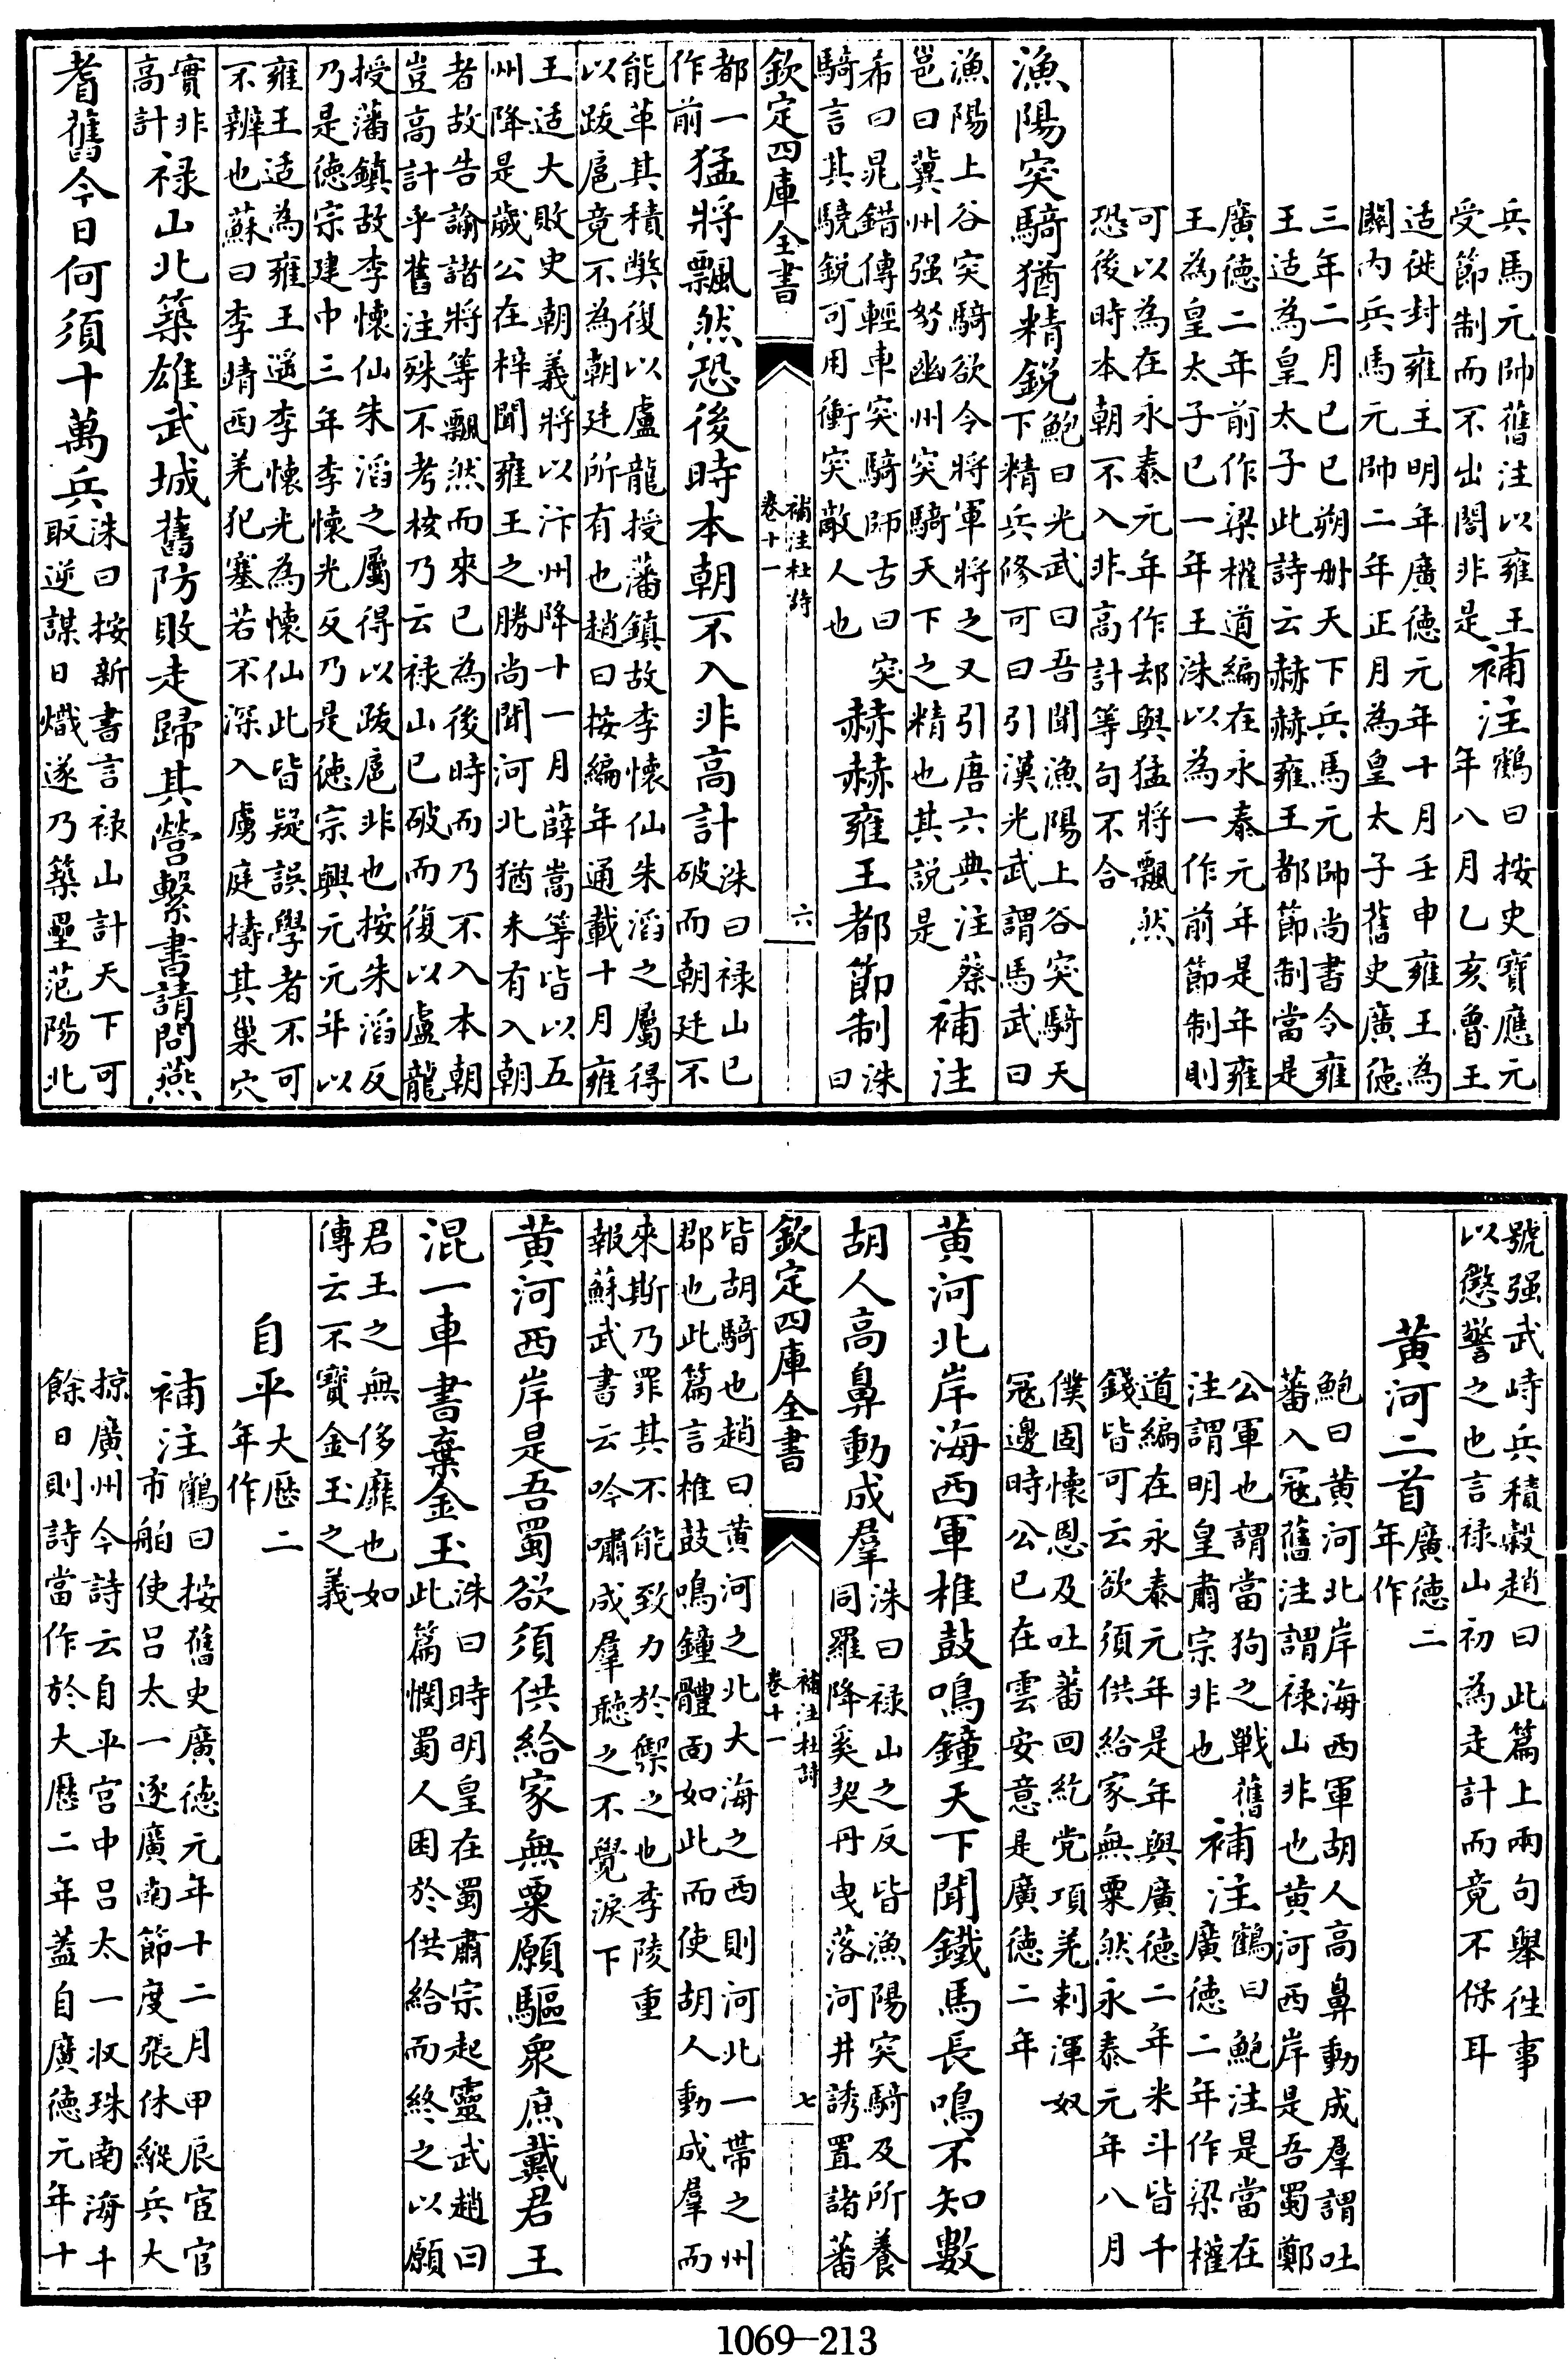 兵馬元帥舊注以雍王
受節制而不出閤非是
補注
鶴曰按史寶應元
年八月乙亥魯王
适徙封雍王明年廣徳元年十月壬申雍王為
闗内兵馬元帥二年正月為皇太子舊史廣徳
三年二月已巳朔冊天下兵馬元帥尚書令雍
王适為皇太子此詩云赫赫雍王都節制當是
廣徳二年前作梁權道編在永泰元年是年雍
王為皇太子已一年王洙以為一作前節制則
可以為在永泰元年作却與猛將飄然
恐後時本朝不入非高計等句不合
漁陽突騎猶精鋭
鮑曰光武曰吾聞漁陽上谷突騎天
下精兵修可曰引漢光武謂馬武曰
漁陽上谷突騎欲令將軍將之又引唐六典注蔡
邕曰冀州强弩幽州突騎天下之精也其說是
補注
希曰晁錯傳輕車突騎師古曰突
騎言其驍鋭可用衝突敵人也
赫赫雍王都節制
洙
曰
欽定四庫全書
補注杜詩
卷十一
六
都一
作前
猛將飄然恐後時本朝不入非高計
洙曰禄山已
破而朝廷不
能革其積弊復以盧龍授藩鎮故李懷仙朱滔之屬得
以跋扈竟不為朝廷所有也趙曰按編年通載十月雍
王适大敗史朝義將以汴州降十一月薛嵩等皆以五
州降是歲公在梓聞雍王之勝尚聞河北猶未有入朝
者故告諭諸將等飄然而來已為後時而乃不入本朝
豈高計乎舊注殊不考核乃云禄山已破而復以盧龍
授藩鎮故李懷仙朱滔之屬得以跋扈非也按朱滔反
乃是徳宗建中三年李懷光反乃是徳宗興元元年以
雍王适為雍王遥李懷光為懷仙此皆疑誤學者不可
不辨也蘇曰李靖西羌犯塞若不深入虜庭擣其巢穴
實非
高計
禄山北築雄武城舊防敗走歸其營繫書請問燕
耆舊今日何須十萬兵
洙曰按新書言禄山計天下可
取逆謀日熾遂乃築壘范陽北
號强武峙兵積穀趙曰此篇上兩句舉徃事
以懲警之也言禄山初為走計而竟不保耳
黄河二首
廣徳二
年作
鮑曰黄河北岸海西軍胡人高鼻動成羣謂吐
蕃入冦舊注謂禄山非也黄河西岸是吾蜀鄭
公軍也謂當狗之戰舊
注謂明皇肅宗非也
補注
鶴曰鮑注是當在
廣徳二年作梁權
道編在永泰元年是年與廣徳二年米斗皆千
錢皆可云欲須供給家無粟然永泰元年八月
僕固懷恩及吐蕃回紇党項羌刺渾奴
冦邊時公已在雲安意是廣徳二年
黄河北岸海西軍椎鼓鳴鐘天下聞鐵馬長鳴不知數
胡人高鼻動成羣
洙曰禄山之反皆漁陽突騎及所養
同羅降奚契丹曵落河并誘置諸蕃
欽定四庫全書
補注杜詩
卷十一
七
皆胡騎也趙曰黄河之北大海之西則河北一帶之州
郡也此篇言椎鼓鳴鐘體面如此而使胡人動成羣而
來斯乃罪其不能致力於禦之也李陵重
報蘇武書云吟嘯成羣聽之不覺淚下
黄河西岸是吾蜀欲須供給家無粟願驅衆庶戴君王
混一車書棄金玉
洙曰時明皇在蜀肅宗起靈武趙曰
此篇憫蜀人困於供給而終之以願
君王之無侈靡也如
傳云不寶金玉之義
自平
大歴二
年作
補注
鶴曰按舊史廣徳元年十二月甲辰宦官
市舶使吕太一逐廣南節度張休縱兵大
掠廣州今詩云自平宫中吕太一收珠南海千
餘日則詩當作於大歴二年葢自廣徳元年十
1069—213